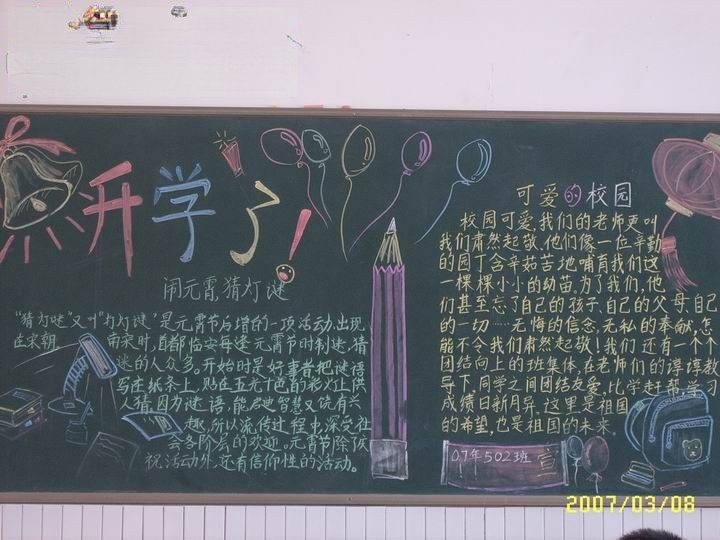 开学了!
闹元宵,猜灯谜
"猜灯谜"又叫"打灯谜"是元宵节后增的一项活动,出现
在宋朝。 南宋时,首都临安每逢元宵节时制迷,猜
迷的人众多。开始时是好事者把谜语
写在纸条上,贴在五光十色的彩灯上供
人猜。因为谜语,能启迪智慧又饶有兴
趣,所以流传过程中,深受社
会各阶层的欢迎。元宵节除庆
祝活动外,还有信仰性的活动。
可爱的校园
校园可爱,我们的老师更叫
我们肃然起敬。他们像一位辛勤
的园丁含辛茹苦地哺育我们这
一棵棵小小的幼苗,为了我们,他
们甚至忘了自己的孩子、自己的父母、自己
的一切……无悔的信念,无私的奉献,怎
能不令我们肃然起敬!我们还有一个个
团结向上的班集体,在老师们的谆谆教
导下,同学之间团结友爱,比学赶帮,学习
成绩日新月异。这里是祖国
的希望,也是祖国的未来。
07年502班 宣
2007/03/08